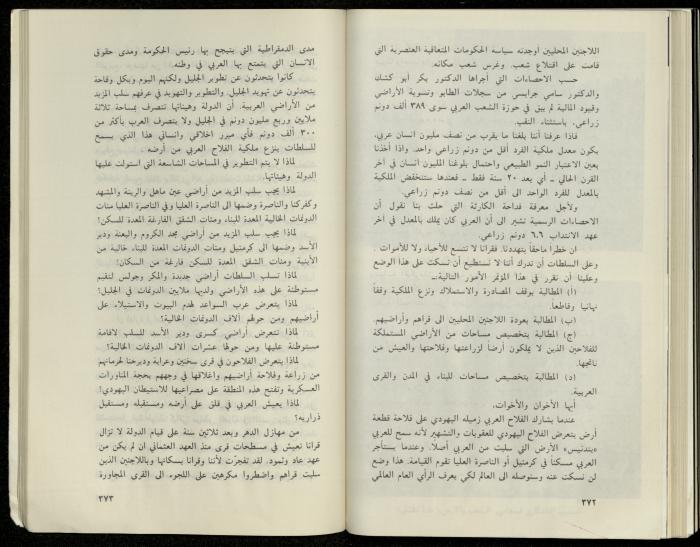 اللاجئين المحليين أوجدته سياسة الحكومات المتعاقبة العنصرية التي
قامت على اقتلاع شعب. وغرس شعب مكانه.
حسب الاحصاءات التي أجراها الدكتور بكر أبو كشك
والدكتور سامي جرايسي من سجلات الطابو وتسوية الأراضي
وقيود المالية لم يبق في حوزة الشعب العربي سوى ٣٨٩ ألف دونم
زراعي. باستثناء النقب.
فاذا عرفنا أننا بلغنا ما يقرب من نصف مليون انسان عربي.
يكون معدل ملكية الفرد أقل من دونم زراعي واحد. واذا أخذنا
بعين الاعتبار النمو الطبيعي واحتمال بلوغنا المليون انسان في آخر
القرن الحالي ـ أي بعد ٢٠ سنة فقط ـ فعندها ستنخفض الملكية
بالمعدل للفرد الواحد الى أقل من نصف دونم زراعي.
ولأجل معرفة فداحة الكارثة التي حلت بنا نقول أن
الاحصاءات الرسمية تشير الى أن العربي كان يملك بالمعدل في آخر
عهد الانتداب ٦،٦ دونم زراعي.
ان خطراً ماحقاً يتهددنا. فقرانا لا تتسع للأحياء ولا للأموات.
وعلى السلطات أن تدرك أننا لا نستطيع أن نسكت على هذا الوضع
وعلينا أن نقرر في هذا المؤتمر الأمور التالية:ـ
(أ) المطالبة بوقف المصادرة والاستملاك ونزع الملكية وقفاً
نهائيا وقاطعاً.
(ب) المطالبة بعودة اللاجئين المحليين الى قراهم وأراضيهم.
(ج) المطالبة بتخصيص مساحات من الأراضي المستملكة
للفلاحين الذين لا يملكون أرضاً لزراعتها وفلاحتها والعيش من
ناتجها.
(د) المطالبة بتخصيص مساحات للبناء في المدن والقرى
العربية.
أيها الأخوان والأخوات،
عندما يشارك الفلاح العربي زميله اليهودي على فلاحة قطعة
أرض يتعرض الفلاح اليهودي للعقوبات والتشهير لأنه سمح للعربي
«بتدنيس» الأرض التي سلبت من العربي أصلا. وعندما يستأجر
العربي مسكناً في كرمئيل أو الناصرة العليا تقوم القيامة. هذا وضع
لن نسكت عنه وسنوصله الى العالم لكي يعرف الرأي العام العالمي
٣٧٢
مدى الدمقراطية التي يتبجح بها رئيس الحكومة ومدى حقوق
الانسان التي يتمتع بها العربي في وطنه.
كانوا يتحدثون عن تطوير الجليل ولكنهم اليوم وبكل وقاحة
يتحدثون عن تهويد الجليل. والتطوير والتهويد في عرفهم سلب المزيد
من الأراضي العربية. أن الدولة وهيئاتها تتصرف بمساحة ثلاثة
ملايين وربع مليون دونم في الجليل ولا يتصرف العرب بأكثر من
٣٠٠ ألف دونم فأي مبرر اخلاقي وانساني هذا الذي يسمح
للسلطات بنزع ملكية الفلاح العربي من أرضه.
لماذا لا يتم التطوير في المساحات الشاسعة التي استولت عليها
الدولة وهيئاتها.
لماذا يجب سلب المزيد من أراضي عين ماهل والرينة والمشهد
وكفركنا والناصرة وضمها الى الناصرة العليا وفي الناصرة العليا مئات
الدونمات الخالية المعدة للبناء ومئات الشقق الفارغة المعدة للسكن!
لماذا يجب سلب المزيد من أراضي مجد الكروم والبعنة ودير
الأسد وضمها الى كرمئيل ومئات الدونمات المعدة للبناء خالية من
الأبنية ومئات الشقق المعدة للسكن فارغة من السكان!
لماذا تسلب السلطات أراضي جديدة والمكر وجولس لتقيم
مستوطنة على هذه الأراضي ولديها ملايين الدونمات في الجليل؟
لماذا يتعرض عرب السواعد لهدم البيوت والاستيلاء على
أراضيهم ومن حولهم آلاف الدونمات الخالية؟
لماذا تتعرض أراضي كسرى ودير الأسد للسلب لاقامة
مستوطنة عليها ومن حولها عشرات الاف الدونمات الخالية؟
لماذا يتعرض الفلاحون في قرى سخنين وعرابة وديرحنا لحرمانهم
من زراعة وفلاحة أراضيهم واغلاقها في وجههم بحجة المناورات
العسكرية وتفتح هذه المنطقة على مصراعيها للاستيطان اليهودي!
لماذا يعيش العربي في قلق على أرضه ومستقبله ومستقبل
ذراريه؟
من مهازل الدهر وبعد ثلاثين سنة على قيام الدولة لا تزال
قرانا تعيش في مسطحات قرى منذ العهد العثماني ان لم يكن من
عهد عاد وثمود. لقد تفجرت لأننا وقرانا بسكانها وباللاجئين الذين
سلبت قراهم واضطروا مكرهين على اللجوء الى القرى المجاورة
٣٧٣